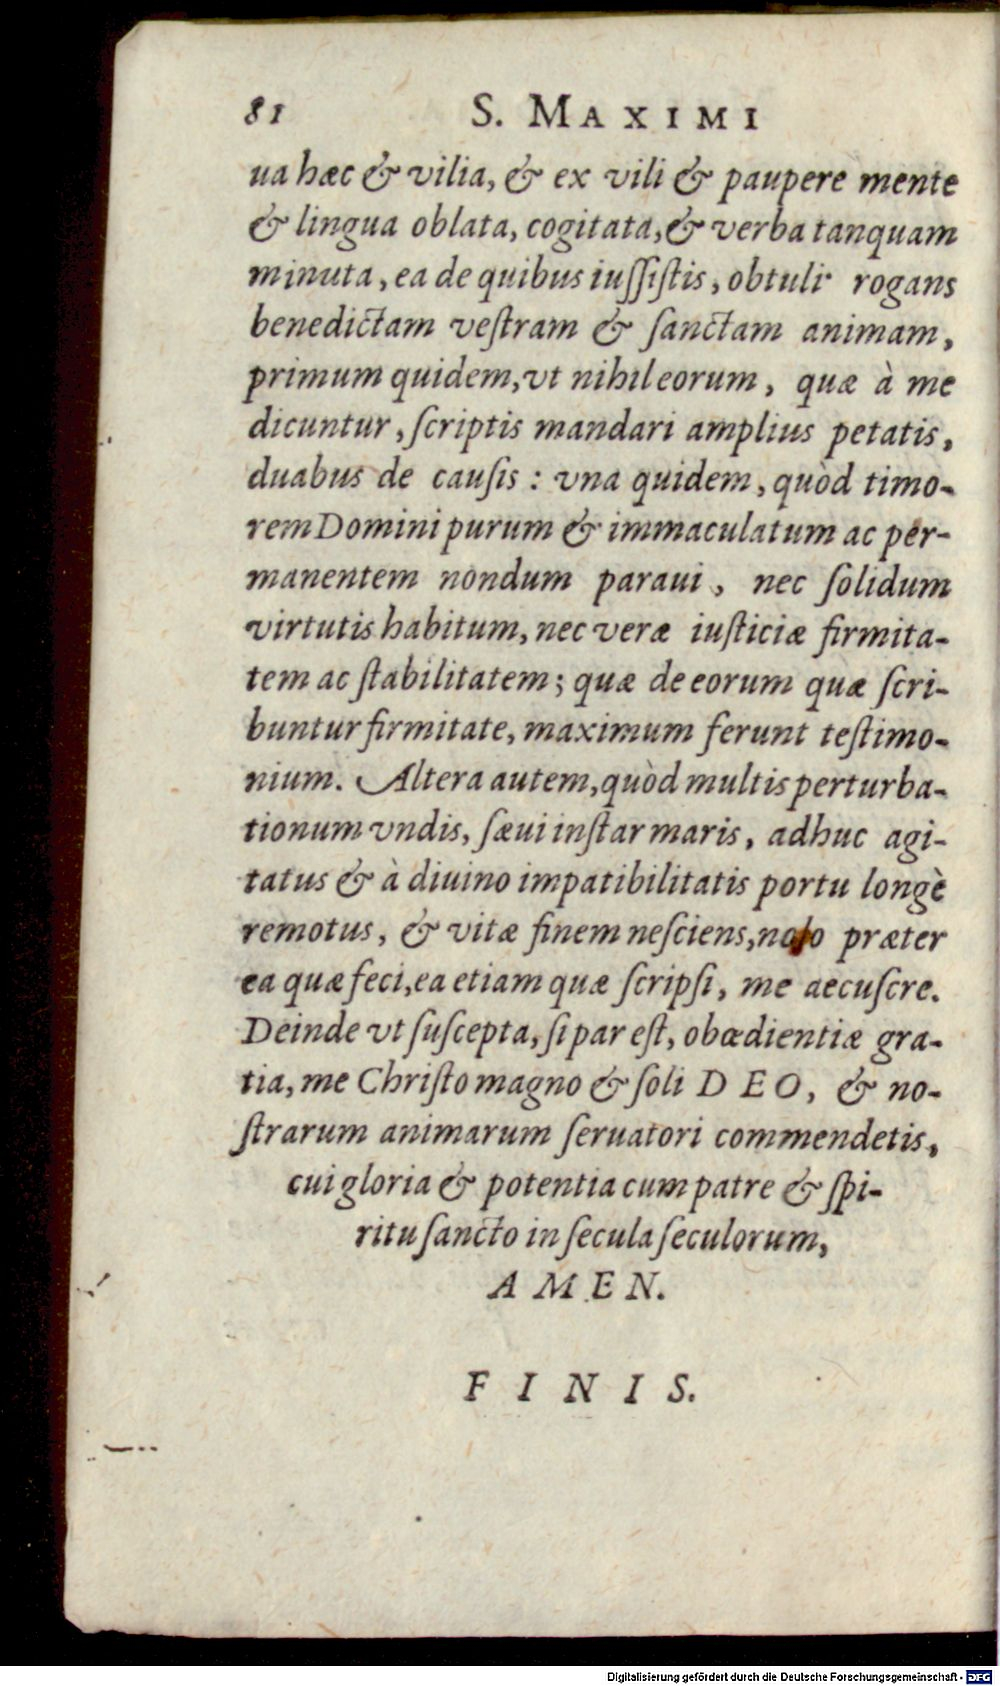 81 S. MAXIMI
ua hæc & vilia, & ex vili & paupere mente
& lingua oblata, cogitata, & verba tanquam
minuta, ea de quibus iuſſiſtis, obtuli rogans
benedictam veſtram & ſanctam animam,
primum quidem, vt nihil eorum, quæ à me
dicuntur, ſcriptis mandari amplius petatis,
duabus de cauſis: vna quidem, quòd timo-
rem Domini purum & immaculatum ac per-
manentem nondum paraui, nec ſolidum
virtutis habitum, nec veræ iuſticiæ firmita-
tem ac ſtabilitatem; quæ de eorum quæ ſcri-
buntur firmitate, maximum ferunt teſtimo-
nium. Altera autem, quòd multis perturba-
tionum vndis, ſæui inſtar maris, adhuc agi-
tatus & à diuino impatibilitatis portu longè
remotus, & vitæ finem neſciens, nolo præter
ea quæ feci, ea etiam quæ ſcripſi, me aecuſcre.
Deinde vt ſuſcepta, ſi par eſt, obœdientiæ gra-
tia, me Chriſto magno & ſoli DEO, & no-
ſtrarum animarum ſeruatori commendetis,
cui gloria & potentia cum patre & ſpi-
ritu ſancto in ſecula ſeculorum,
AMEN.
FINIS.
Digitalisierung gefördert durch die Deutsche Forschungsgemeinschaft - DFG